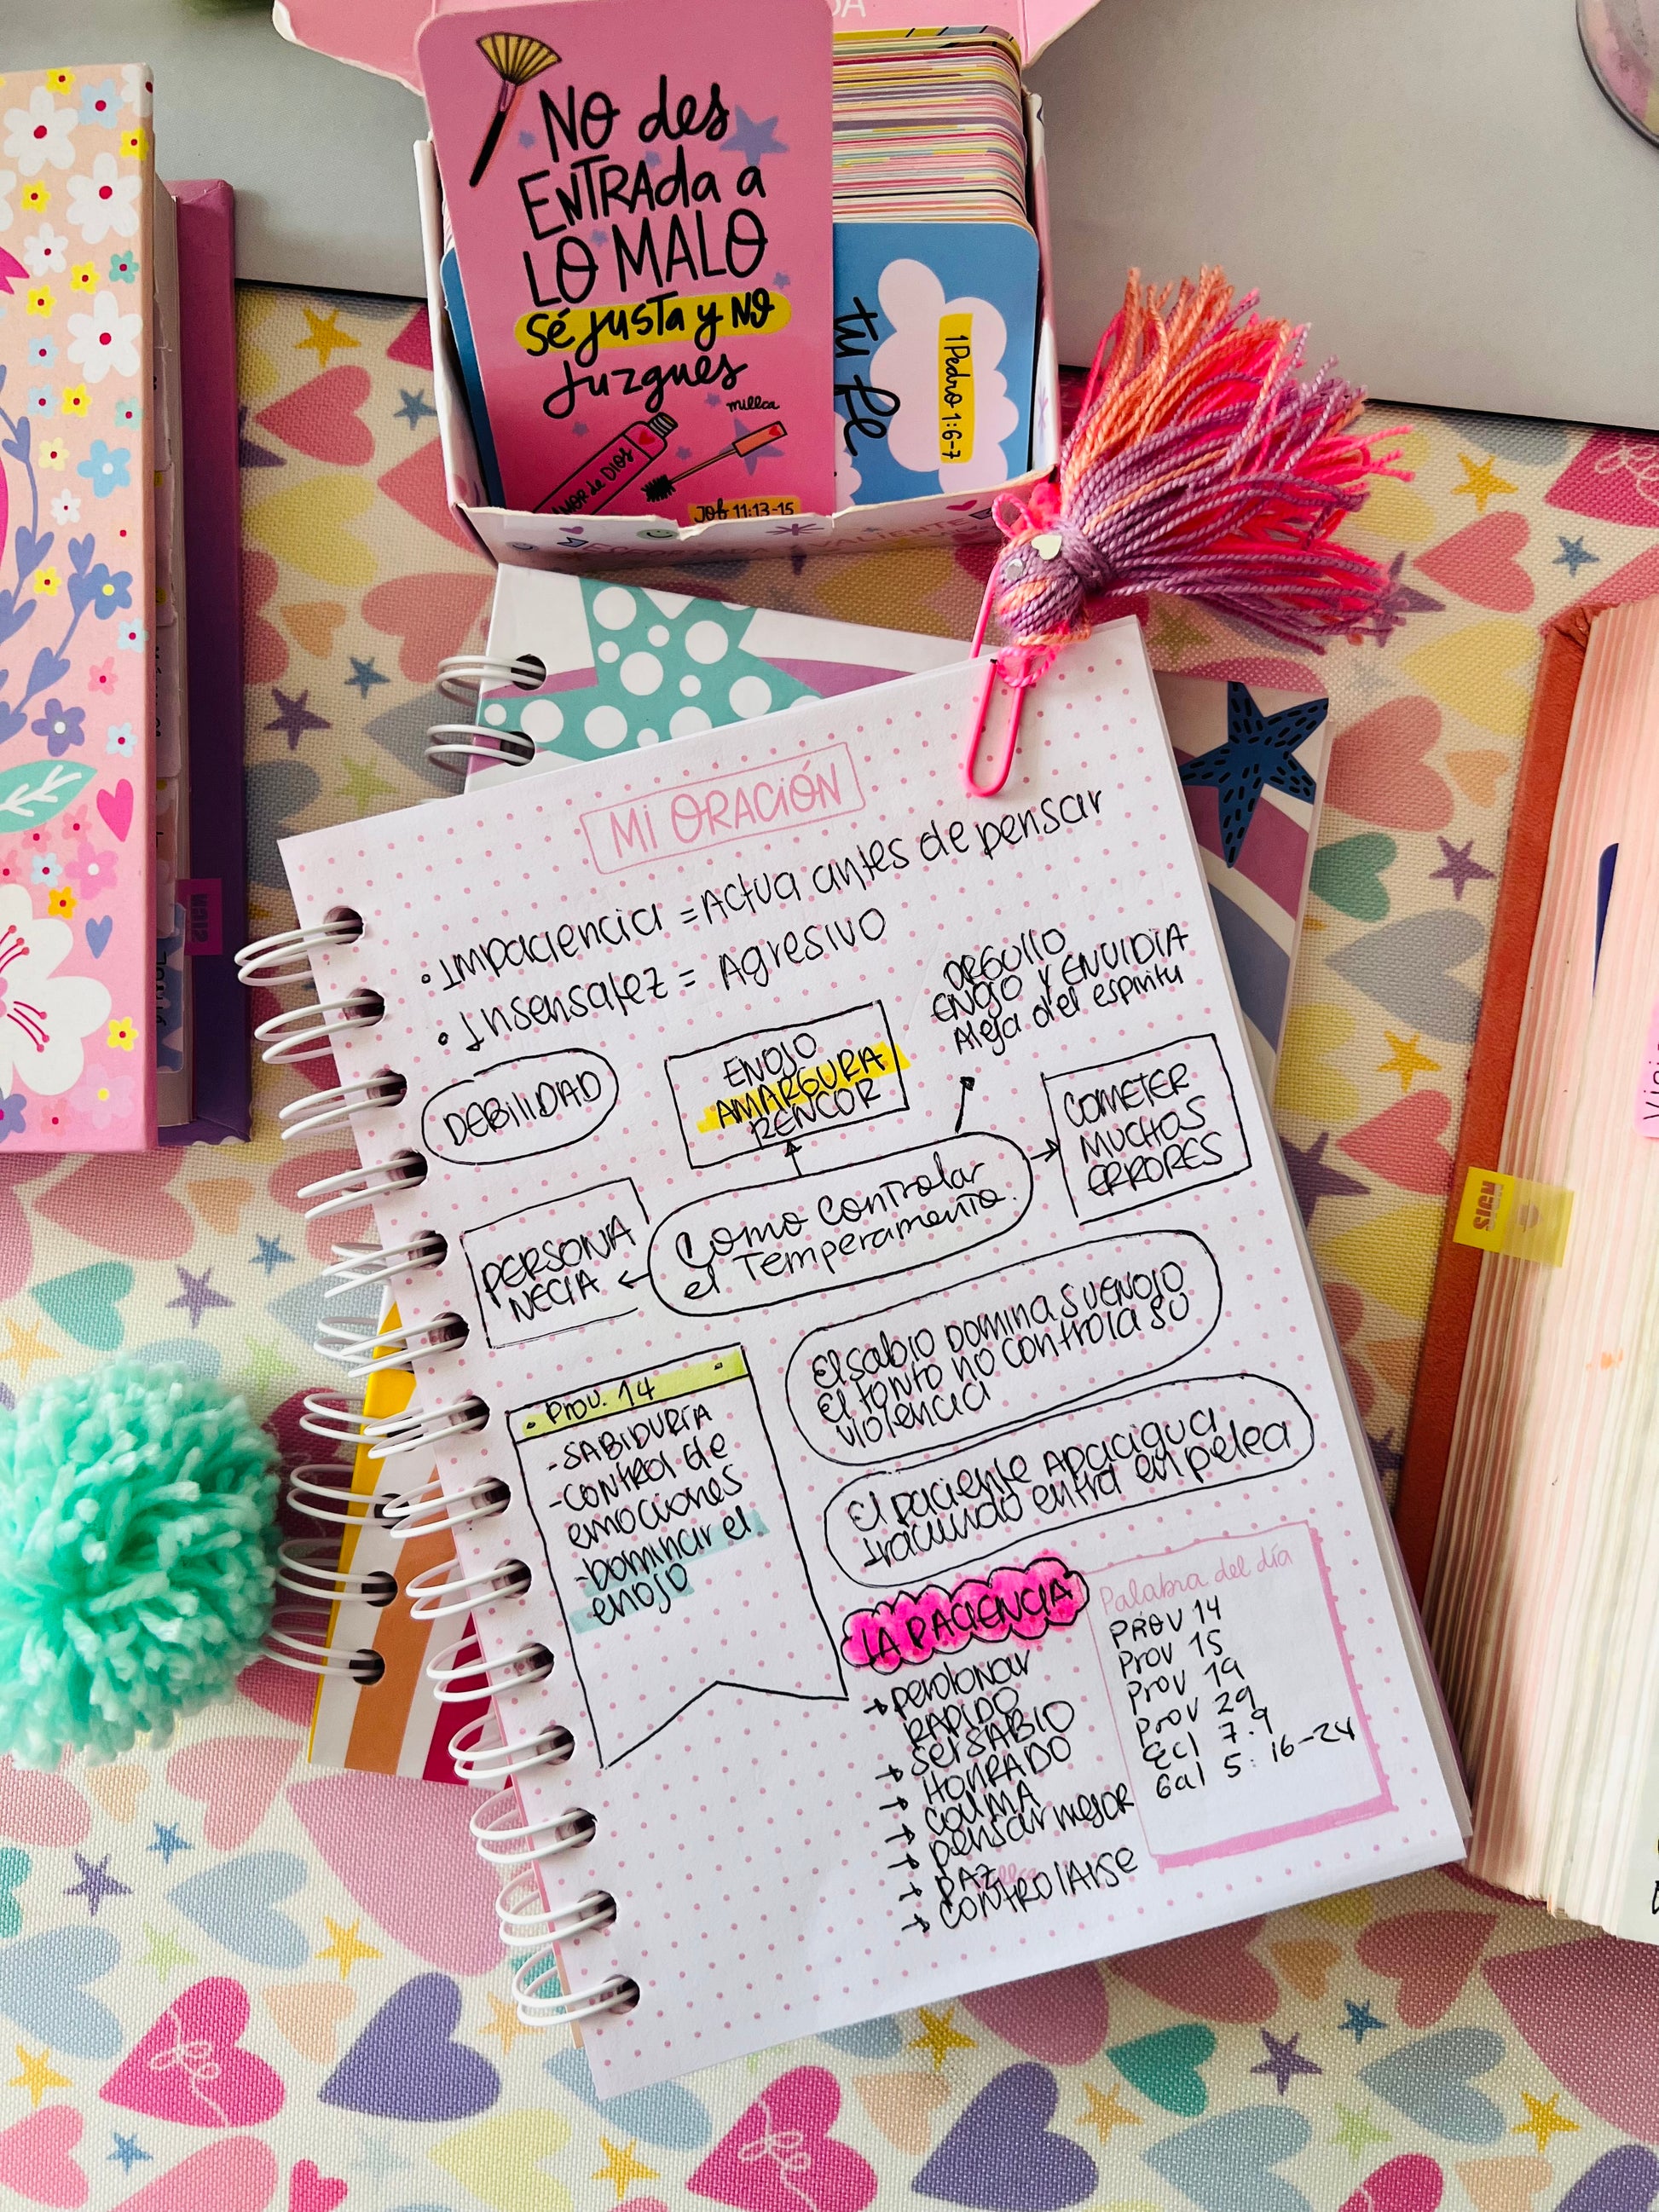 NO des
ENTRADA a
LO MALO
Sé justa y NO
juzgues
millca
AMOR de DIOS
JOB 11:13-15
tu fe
1 Pedro 1:6-7
SIGN
MI ORACIÓN
• Impaciencia = Actua antes de pensar
• Insensatez = Agresivo
ORGULLO
ENOJO Y ENVIDIA
Aleja del espiritu
DEBILIDAD
ENOJO
AMARGURA
RENCOR
COMETER
MUCHOS
ERRORES
PERSONA
NECIA
Como controlar
el Temperamento.
El sabio DOMINA SU ENOJO
El tonto no controla su
violencia
• Prov. 14
- SABIDURÍA
- control de
emociones
- Dominar el
enojo
El paciente Apacigua
Iracundo entra en pelea
LA PACIENCIA
+ perdonar
RAPIDO
+ Ser SABIO
+ HONRADO
+ CALMA
+ pensar mejor
+ PAZ
+ CONTROLARSE
Palabra del día
PROV 14
Prov 15
Prov 19
Prov 29
Ecl 7.9
Gal 5: 16-24
SIGN